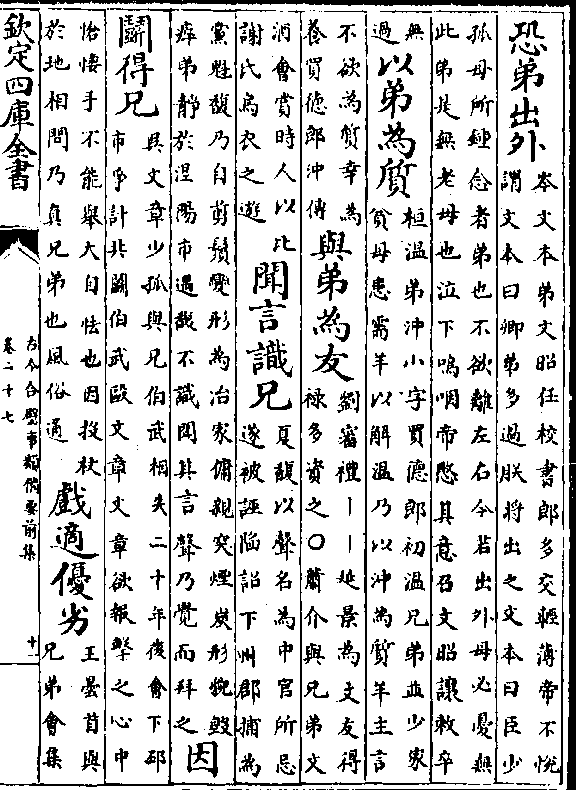 恐弟出外
岑文本弟文昭任校書郎多交輕薄帝不悅
謂文本曰卿弟多過朕將出之文本曰臣少
孤母所鍾念者弟也不欲離左右今若出外母必憂無
此弟是無老母也泣下嗚咽帝愍其意召文昭讓敕卒
無
過
以弟為質
桓温弟沖小字買德郎初温兄弟並少家
貧母患需羊以解温乃以沖為質羊主言
不欲為質幸為
養買德郎沖傳
與弟為友
劉審禮丨丨延景為文友得
禄多資之○蕭介與兄弟文
洞會賞時人以比
謝氏烏衣之遊
聞言識兄
夏馥以聲名為中官所忌
遂被誣陷詔下州郡捕為
黨魁馥乃自剪鬚變形為冶家傭親突煙炭形貌毀
瘁弟靜於湼陽市遇馥不識聞其言聲乃覺而拜之
因
鬬得兄
吳文章少孤與兄伯武相失二十年後會下邳
市爭計共鬬伯武毆文章文章欲報擊之心中
怡悽手不能舉大自怯也因投杖
於地相問乃真兄弟也風俗通
戲適優劣
王曇首與
兄弟會集
欽定四庫全書
古今合璧事類備要前集
卷二十七
十一